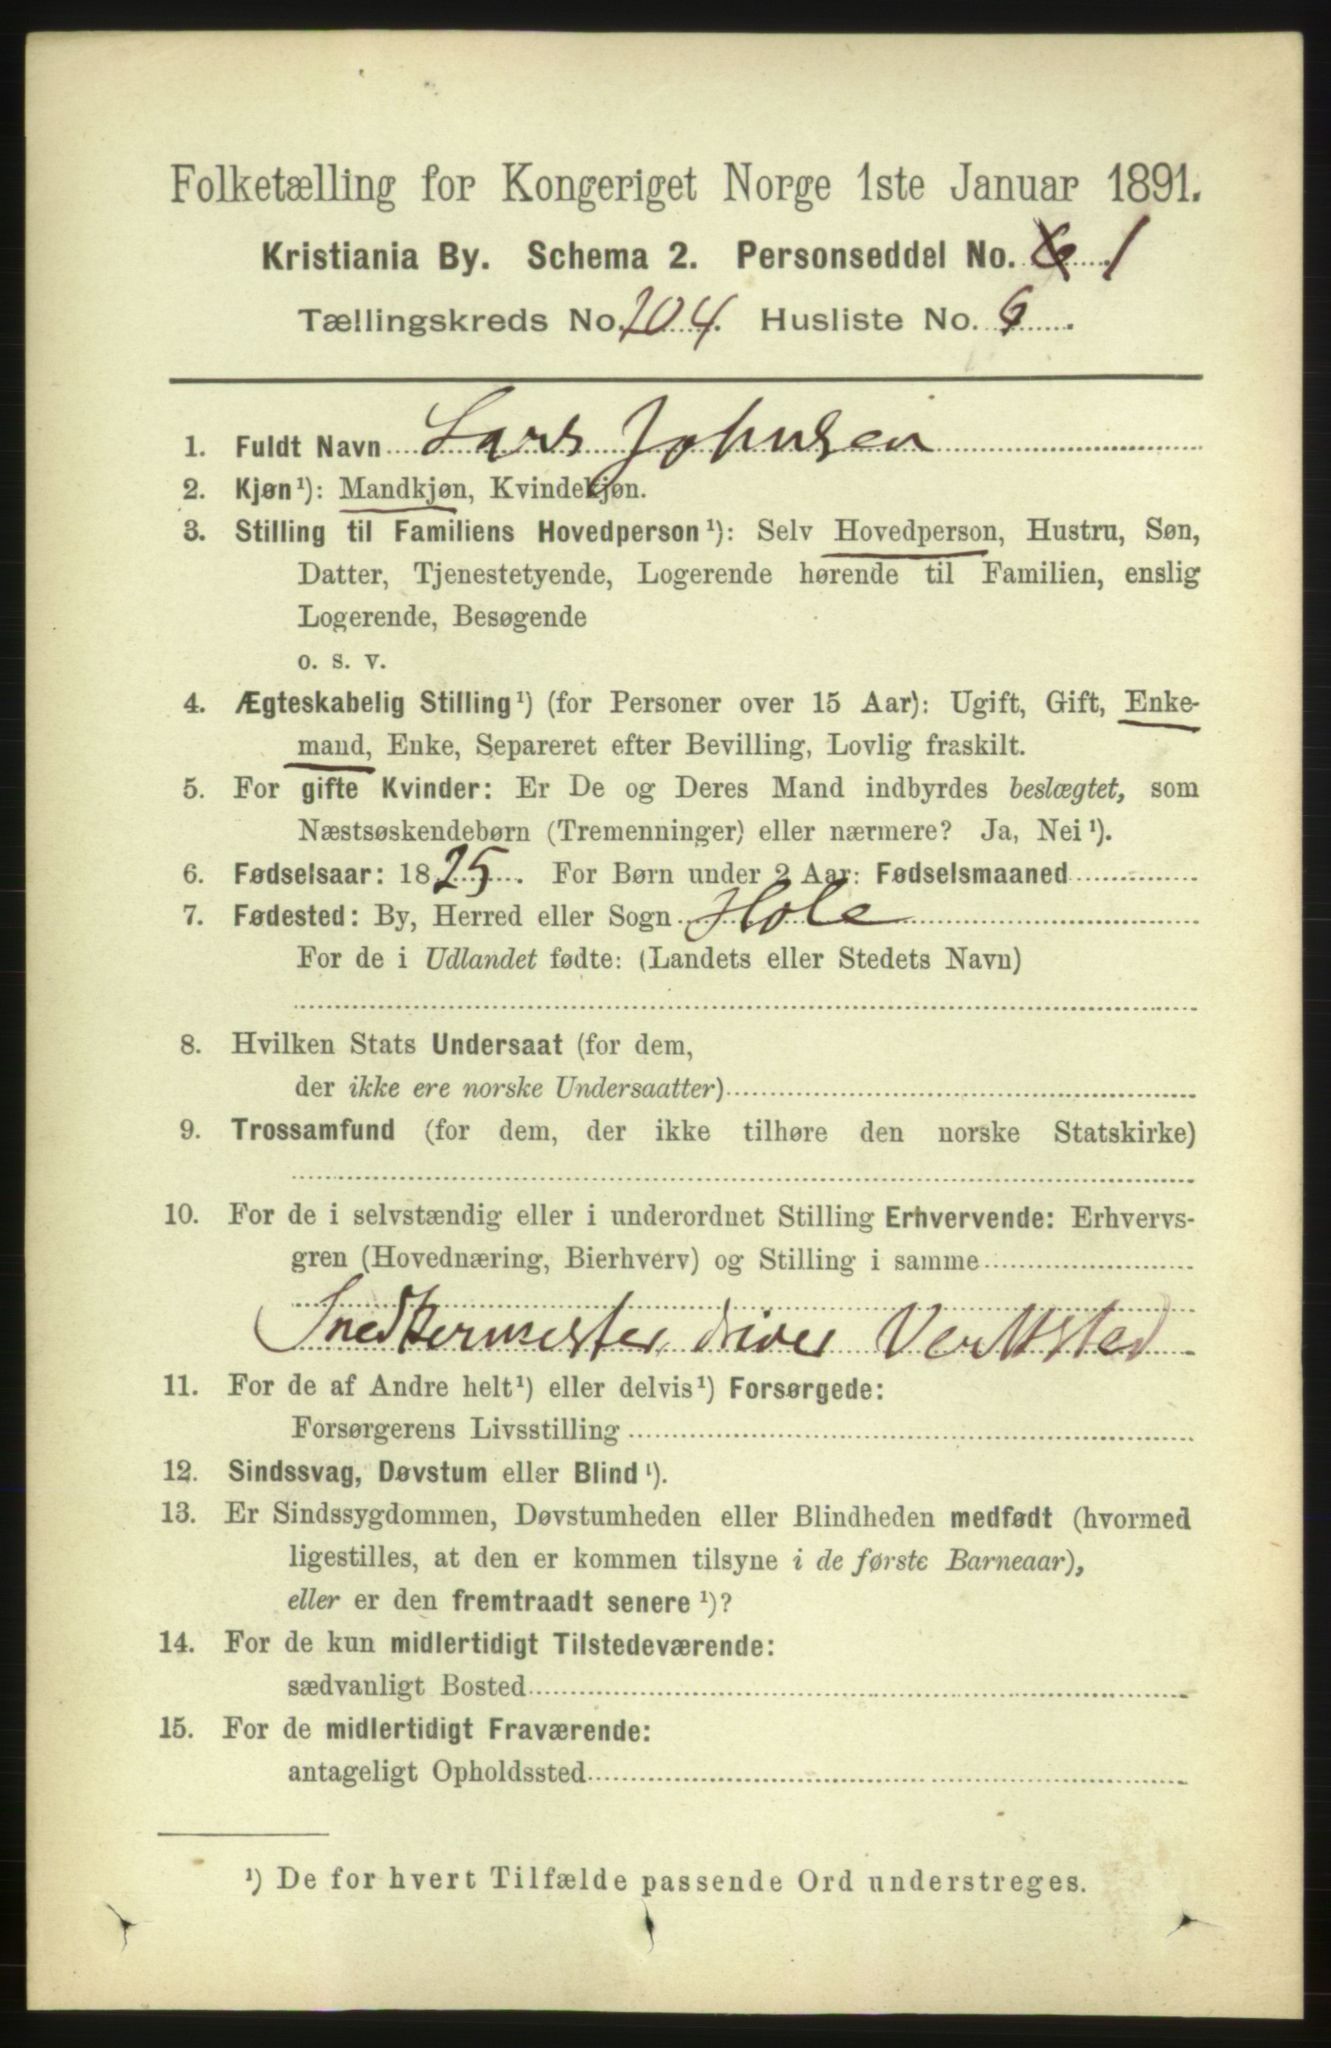 Folketælling for Kongeriget Norge 1ste Januar 1891.
Kristiania By. Schema 2. Personseddel No. 6 1
Tællingskreds No. 204. Husliste No. 6.
1. Fuldt Navn Lars Johnsen
2. Kjøn¹): Mandkjøn, Kvindekjøn.
3. Stilling til Familiens Hovedperson¹): Selv Hovedperson, Hustru, Søn,
Datter, Tjenestetyende, Logerende hørende til Familien, enslig
Logerende, Besøgende
o. s. v.
4. Ægteskabelig Stilling¹) (for Personer over 15 Aar): Ugift, Gift, Enke-
mand, Enke, Separeret efter Bevilling, Lovlig fraskilt.
5. For gifte Kvinder: Er De og Deres Mand indbyrdes beslægtet, som
Næstsøskendebørn (Tremenninger) eller nærmere? Ja, Nei¹).
6. Fødselsaar: 1825. For Børn under 2 Aar: Fødselsmaaned
7. Fødested: By, Herred eller Sogn Hole
For de i Udlandet fødte: (Landets eller Stedets Navn)
8. Hvilken Stats Undersaat (for dem,
der ikke ere norske Undersaatter)
9. Trossamfund (for dem, der ikke tilhøre den norske Statskirke)
10. For de i selvstændig eller i underordnet Stilling Erhvervende: Erhvervs-
gren (Hovednæring, Bierhverv) og Stilling i samme
Snedkermester, driver Verksted
11. For de af Andre helt¹) eller delvis¹) Forsørgede:
Forsørgerens Livsstilling
12. Sindssvag, Døvstum eller Blind¹).
13. Er Sindssygdommen, Døvstumheden eller Blindheden medfødt (hvormed
ligestilles, at den er kommen tilsyne i de første Barneaar),
eller er den fremtraadt senere¹)?
14. For de kun midlertidigt Tilstedeværende:
sædvanligt Bosted
15. For de midlertidigt Fraværende:
antageligt Opholdssted
¹) De for hvert Tilfælde passende Ord understreges.